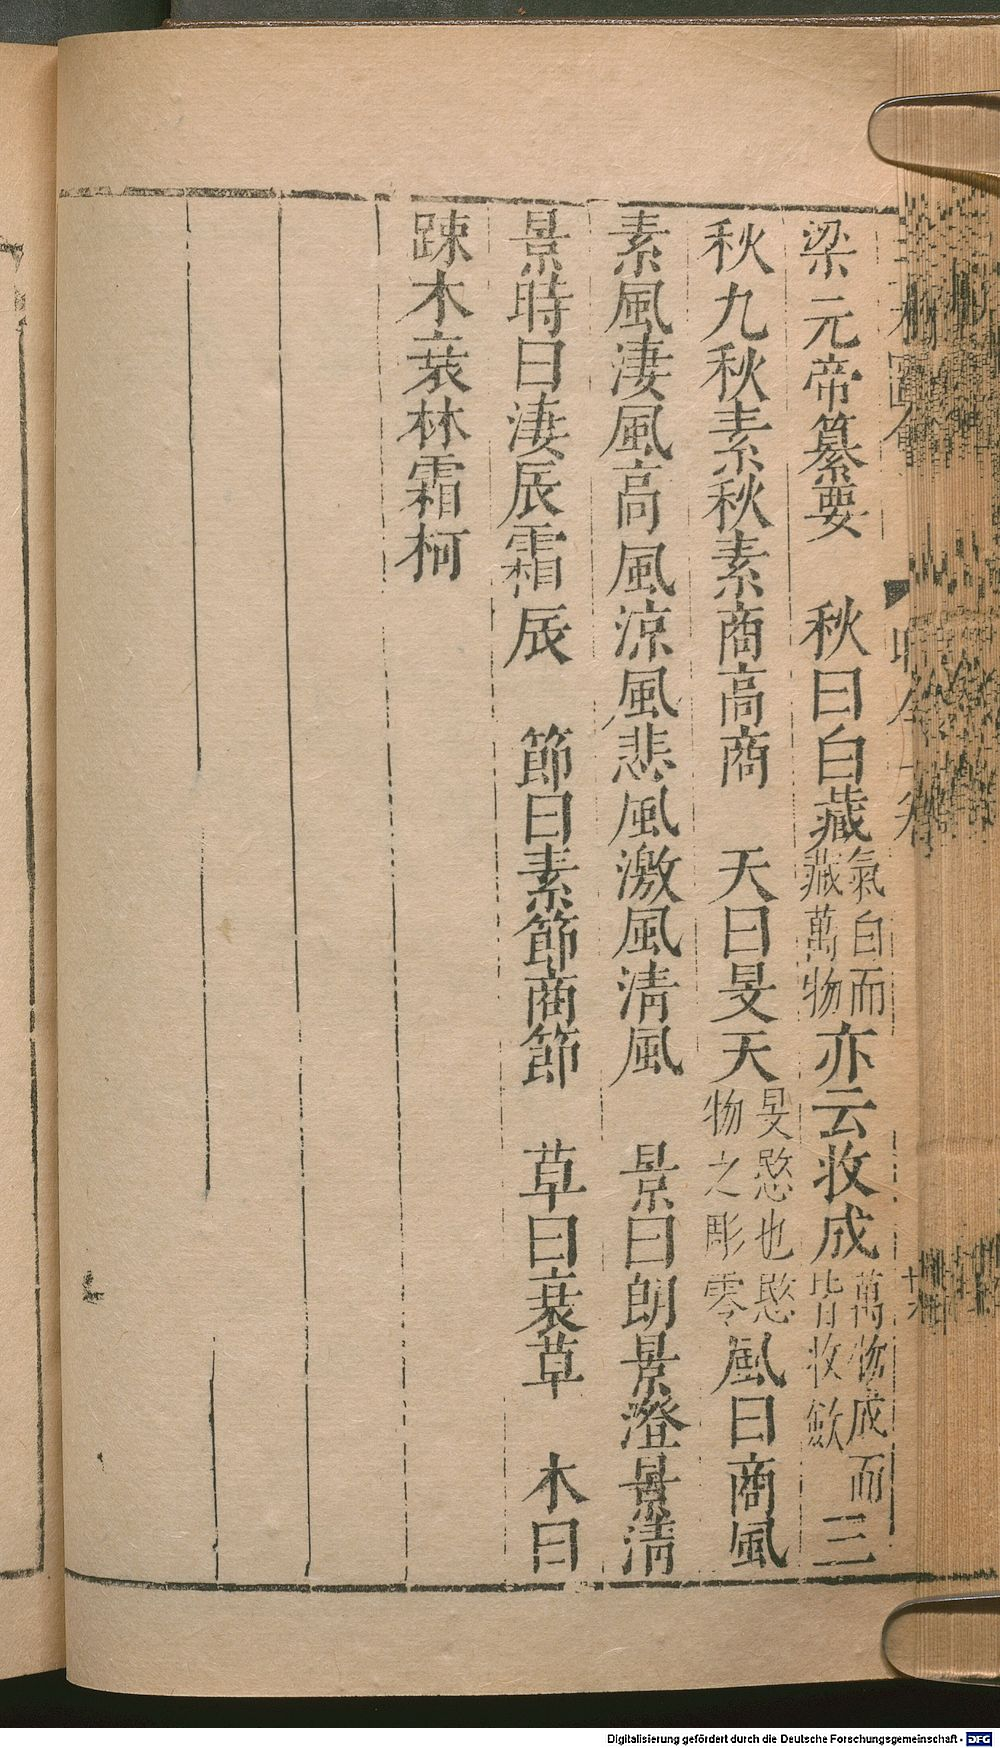 梁元帝纂要　秋曰白藏氣白而藏萬物亦云收成萬物成而皆收斂三
秋九秋素秋素商高商　天曰旻天旻愍也愍物之彫零風曰商風
素風淒風高風涼風悲風激風清風　景曰朗景澄景清
景時曰淒辰霜辰　節曰素節商節　草曰衰草　木曰
踈木衰林霜柯
Digitalisierung gefördert durch die Deutsche Forschungsgemeinschaft - DFG